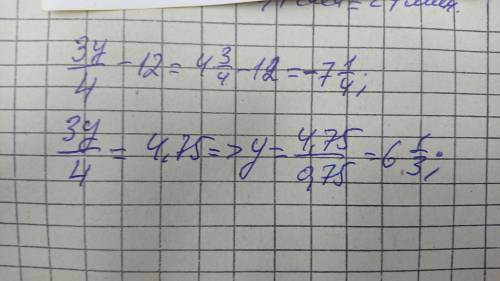 3y/4 - 12 = 4 3/4 - 12 = -7 1/4;
3y/4 = 4,75 => y = 4,75/0,75 = 6 1/3;